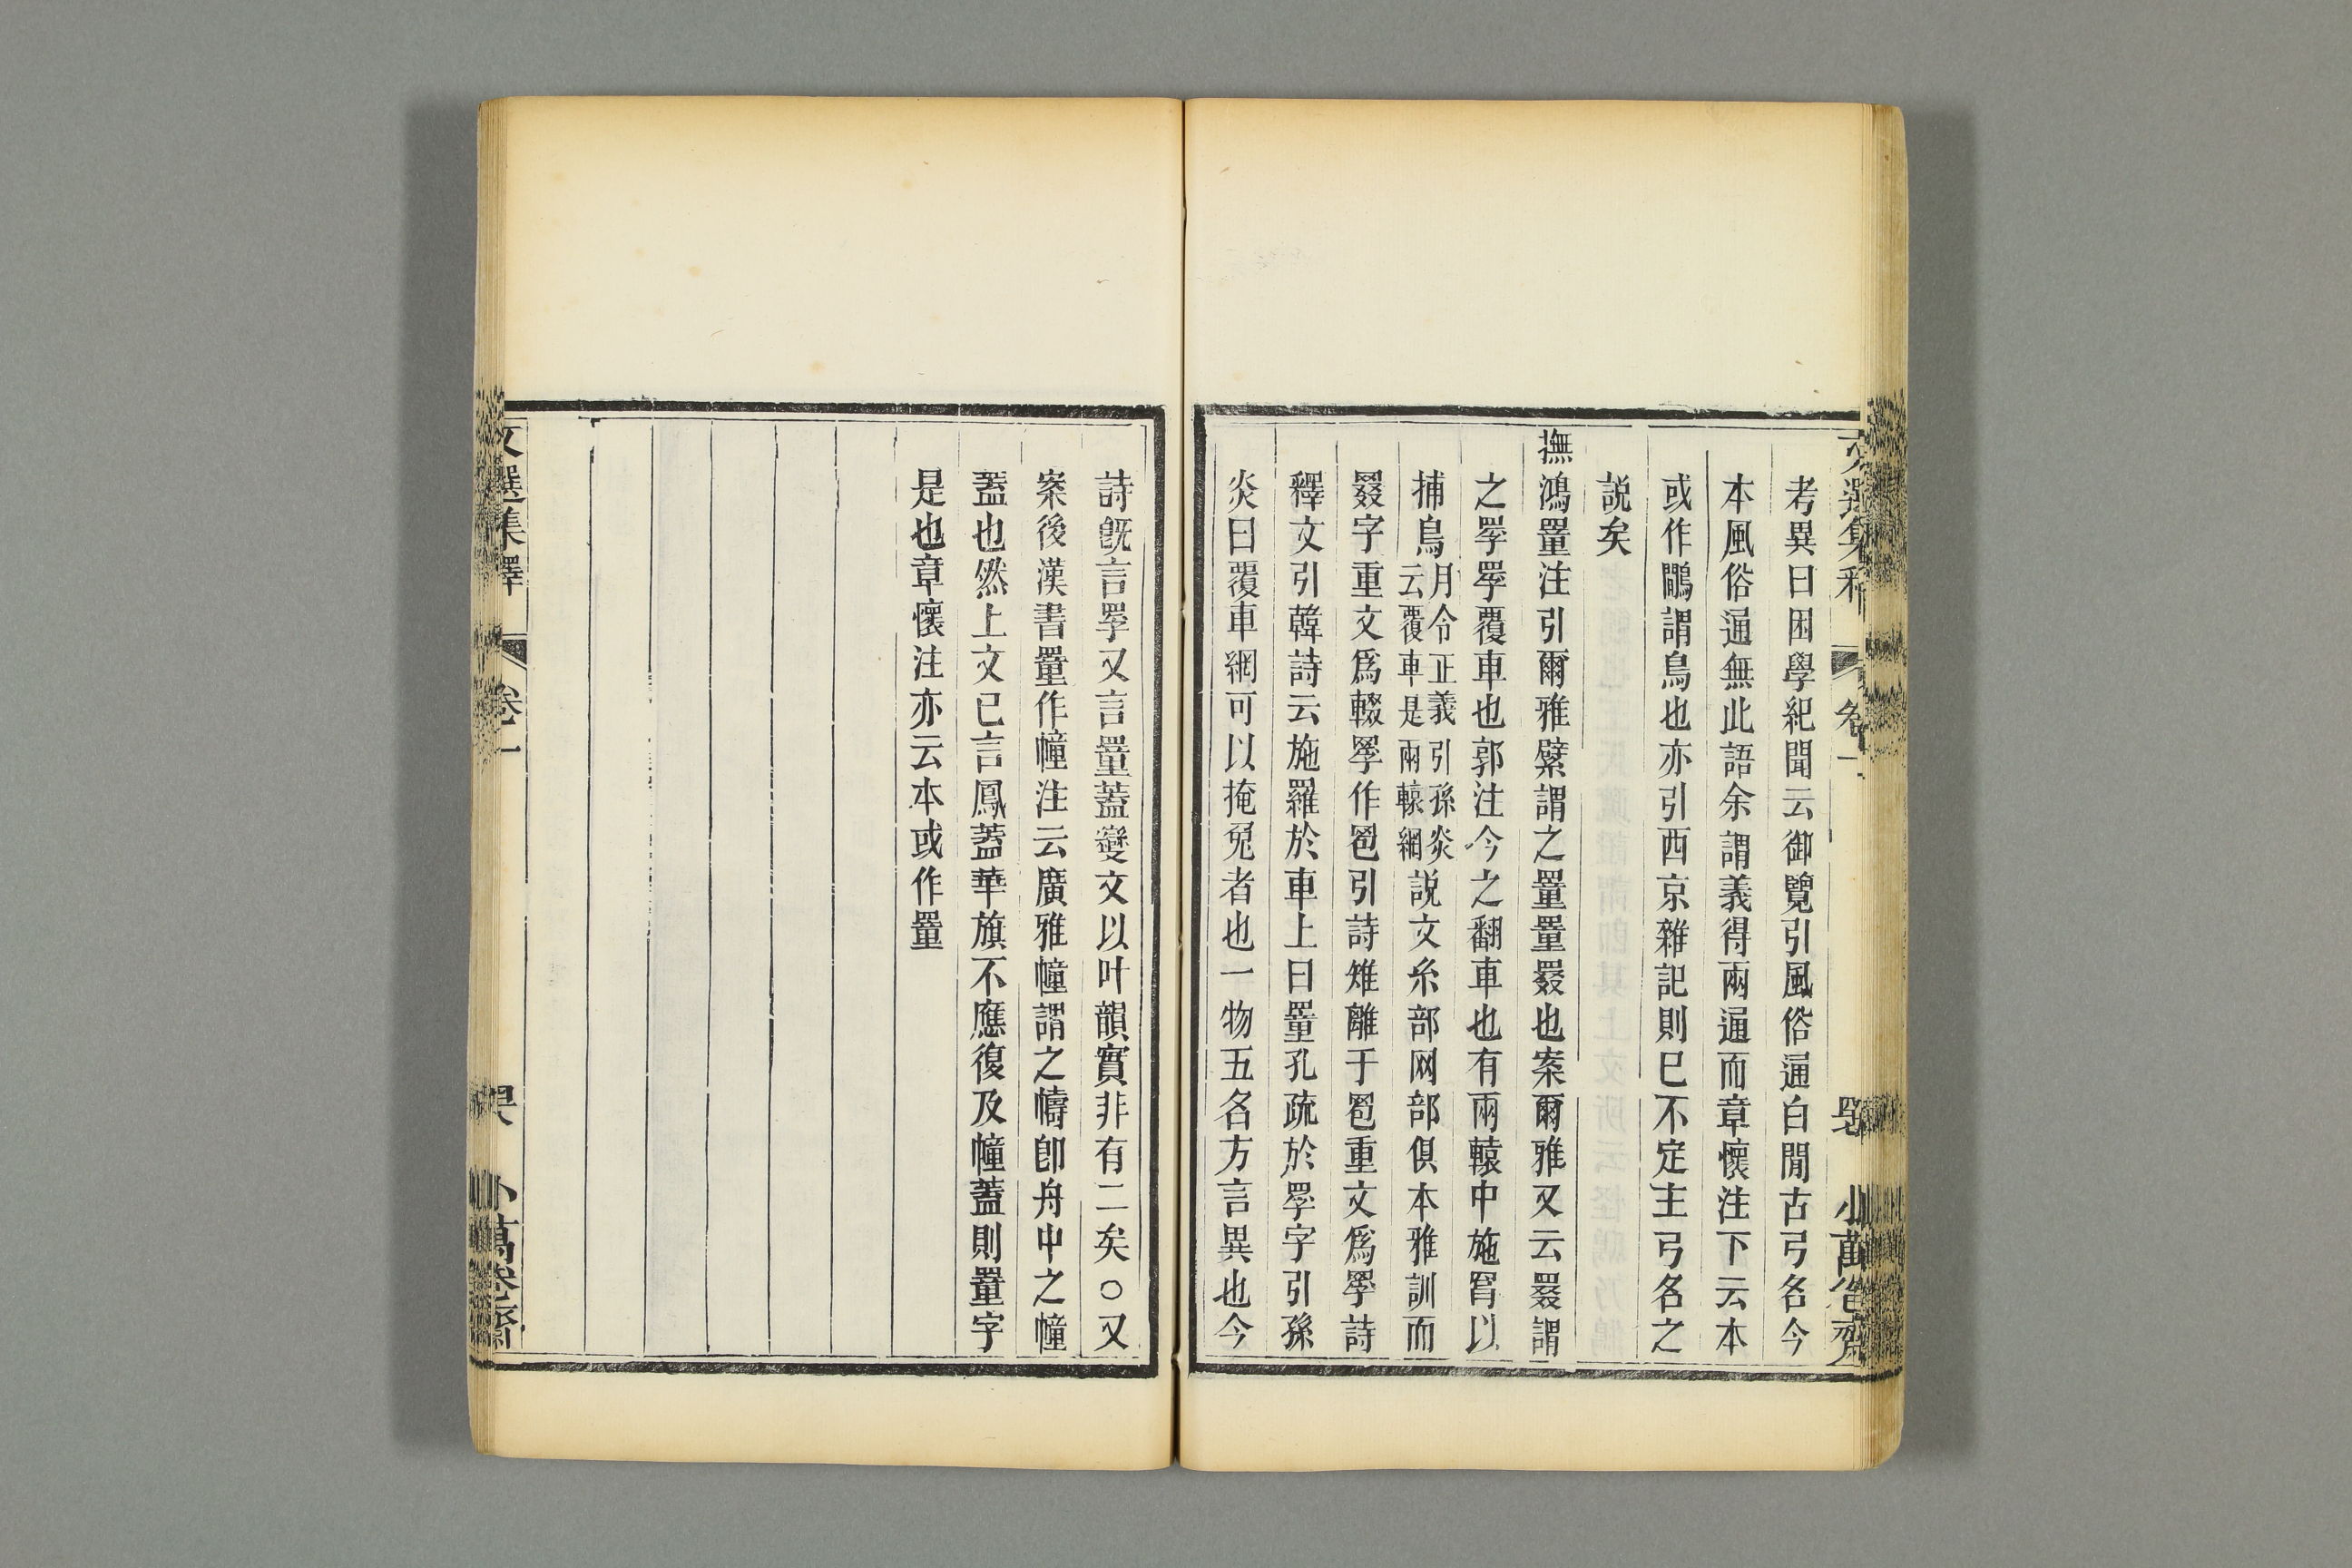 考異曰困學紀聞云御覽引風俗通白鷳古弓名今
本風俗通無此語余謂義得兩通而章懷注下云本
或作鷳謂鳥也亦引西京雜記則已不定主弓名之
說矣
撫鴻罿注引爾雅繴謂之罿罿罬也案爾雅又云罬謂
之罦罦覆車也郭注今之翻車也有兩轅中施罥以
捕鳥月令正義引孫炎云覆車是兩轅網說文糸部网部俱本雅訓而
罬字重文爲輟罦作𦊾引詩雉離于𦊾重文爲罦詩
釋文引韓詩云施羅於車上曰罿孔疏於罦字引孫
炎曰覆車網可以掩兔者也一物五名方言異也今
詩旣言罦又言罿蓋變文以叶韻實非有二矣○又
案後漢書罿作幢注云廣雅幢謂之幬卽舟中之幢
蓋也然上文已言鳳蓋華旗不應復及幢蓋則罿字
是也章懷注亦云本或作罿
文選集釋
卷一
小萬卷齋